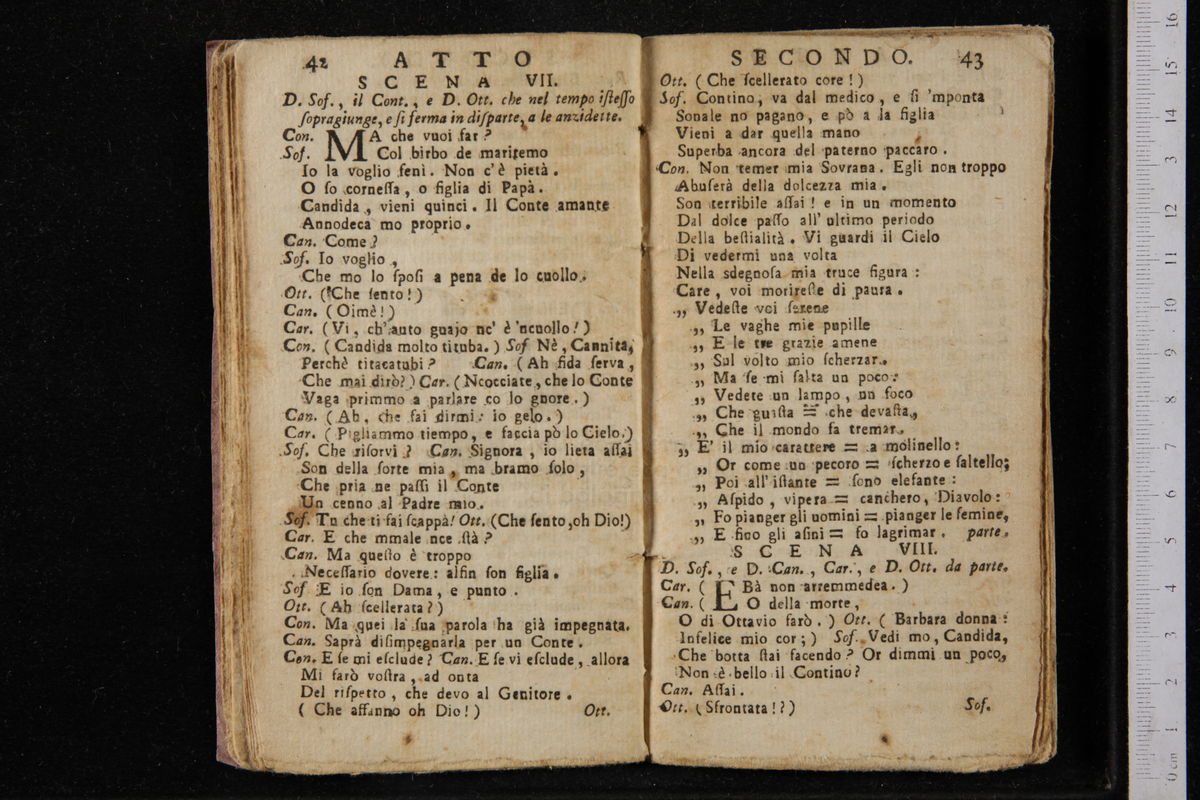 42 ATTO
SCENA VII.
D. Sof., il Cont., e D. Ott. che nel tempo iſteſſo
ſopragiunge, e ſi ferma in diſparte, a le anzidette.
Con. MA che vuoi far?
Sof. Col birbo de maritemo
Io la voglio feni. Non c'è pietà.
O ſo corneſſa, o figlia di Papà.
Candida, vieni quinci. Il Conte amante
Annodeca mo proprio.
Can. Come?
Sof. Io voglio,
Che mo lo ſpoſi a pena de lo cuollo.
Ott. (Che ſento!)
Can. (Oimè!)
Car. (Vi, ch'auto guajo nc' è 'ncuollo!)
Con. (Candida molto tituba.) Sof Nè, Cannita,
Perchè titacatubi? Can. (Ah fida ſerva,
Che mai dirò?) Car. (Ncocciate, che lo Conte
Vaga primmo a parlare co lo gnore.)
Can. (Ah, che fai dirmi: io gelo.)
Car. (Pigliammo tiempo, e faccia pò lo Cielo.)
Sof. Che riſorvi? Can. Signora, io lieta aſſai
Son della ſorte mia, ma bramo ſolo,
Che pria ne paſſi il Conte
Un cenno al Padre mio.
Sof. Tu che ti fai ſcappà! Ott. (Che ſento, oh Dio!)
Car. E che mmale nce ſtà?
Can. Ma queſto è troppo
Neceſſario dovere: alfin ſon figlia.
Sof E io ſon Dama, e punto.
Ott. (Ah ſcellerata?)
Con. Ma quei la ſua parola ha già impegnata.
Can. Saprà diſimpegnarla per un Conte.
Con. E ſe mi eſclude? Can. E ſe vi eſclude, allora
Mi farò voſtra, ad onta
Del riſpetto, che devo al Genitore.
(Che affanno oh Dio!) Ott.
SECONDO. 43
Ott. (Che ſcellerato core!)
Sof. Contino, va dal medico, e ſi 'mponta
Sonale no pagano, e pò a la figlia
Vieni a dar quella mano
Superba ancora del paterno paccaro.
Con. Non temer mia Sovrana. Egli non troppo
Abuſerà della dolcezza mia.
Son terribile aſſai! e in un momento
Dal dolce paſſo all' ultimo periodo
Della beſtialità. Vi guardi il Cielo
Di vedermi una volta
Nella sdegnoſa mia truce figura:
Care, voi morireſte di paura.
„ Vedeſte voi ſerene
„ Le vaghe mie pupille
„ E le tre grazie amene
„ Sul volto mio ſcherzar.
„ Ma ſe mi ſalta un poco:
„ Vedete un lampo, un foco
„ Che guiſta = che devaſta,
„ Che il mondo fa tremar.
„ E' il mio carattere = a molinello:
„ Or come un pecoro = ſcherzo e ſaltello;
„ Poi all' iſtante = ſono elefante:
„ Aſpido, vipera = canchero, Diavolo:
„ Fo pianger gli uomini = pianger le femine,
„ E fino gli aſini = fo lagrimar. parte.
SCENA VIII.
D. Sof., e D. Can., Car., e D. Ott. da parte.
Car. (EBà non arremmedea.)
Can. (O della morte,
O di Ottavio farò.) Ott. (Barbara donna:
Infelice mio cor;) Sof. Vedi mo, Candida,
Che botta ſtai facendo? Or dimmi un poco,
Non è bello il Contino?
Can. Aſſai.
Ott. (Sfrontata!?) Sof.